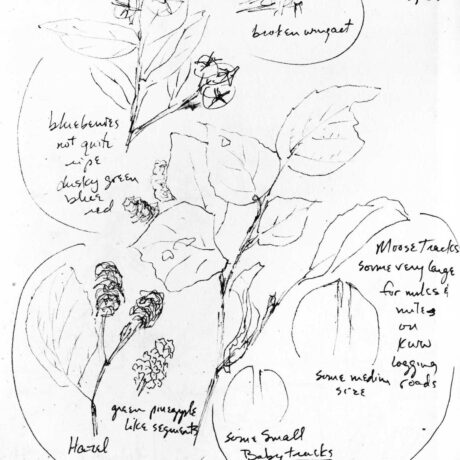 broken
blueberries
not quite
ripe
dusky green
blue
red
Moose Tracks
some very large
for miles &
miles
on
KWW
logging
roads
some medium
size
green pineapple
like segments
some small
Baby tracks
Hazel